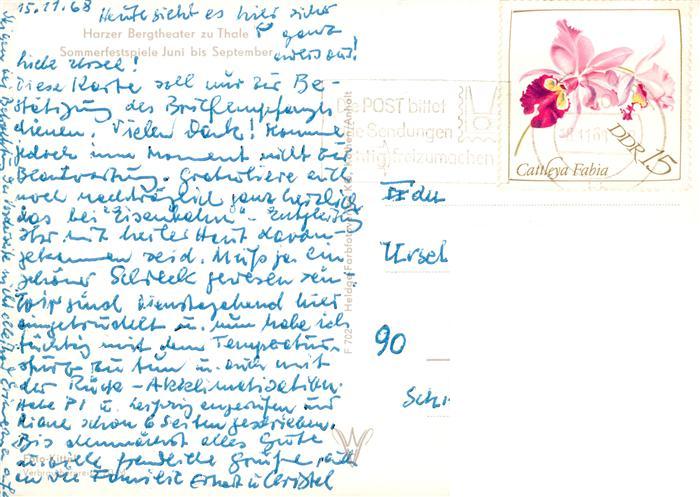 15.11.68
Heute sieht es hier sicher
ganz
anders aus!
Harzer Bergtheater zu Thale
Sommerfestspiele Juni bis September
Liebe Ursel!
Diese Karte soll nur zur Be-
stätigung des Briefempfangs
dienen. Vielen Dank! Komme
jedoch im Moment nicht zur
Beantwortung. Gratuliere auch
noch nachträglich ganz herzlich
das bei "Eisenbahn"-Entgleisung
Ihr mit heiler Haut davon-
gekommen seid. Muß ja ein
schöner Schreck gewesen sein
Wir sind Dienstagabend hier
eingetrudelt u. nun habe ich
tüchtig mit dem Temperatur-
zu tun u. auch mit
der Rück-Akklimatisation.
Habe P1 u. Leipzig angerufen und
schon 6 Seiten geschrieben.
Bis demnächst alles Gute
freundliche Grüße
Familie
Die POST bittet
Sendungen
freizumachen
DDR 15
Cattleya Fabia
Ursel
90
F 702